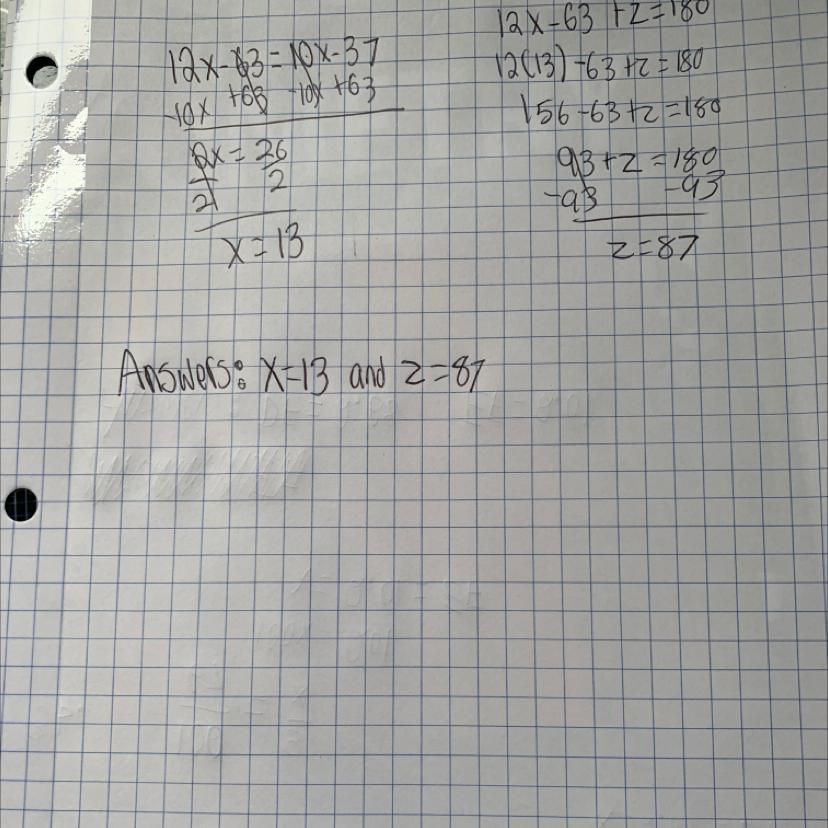 12x-63=10x-37
-10x +63 -10x +63
2x = 26
2 2
x=13
12x-63 +z=180
12(13)-63+z=180
156-63+z=180
93+z=180
-93 -93
z=87
Answers: x=13 and z=87